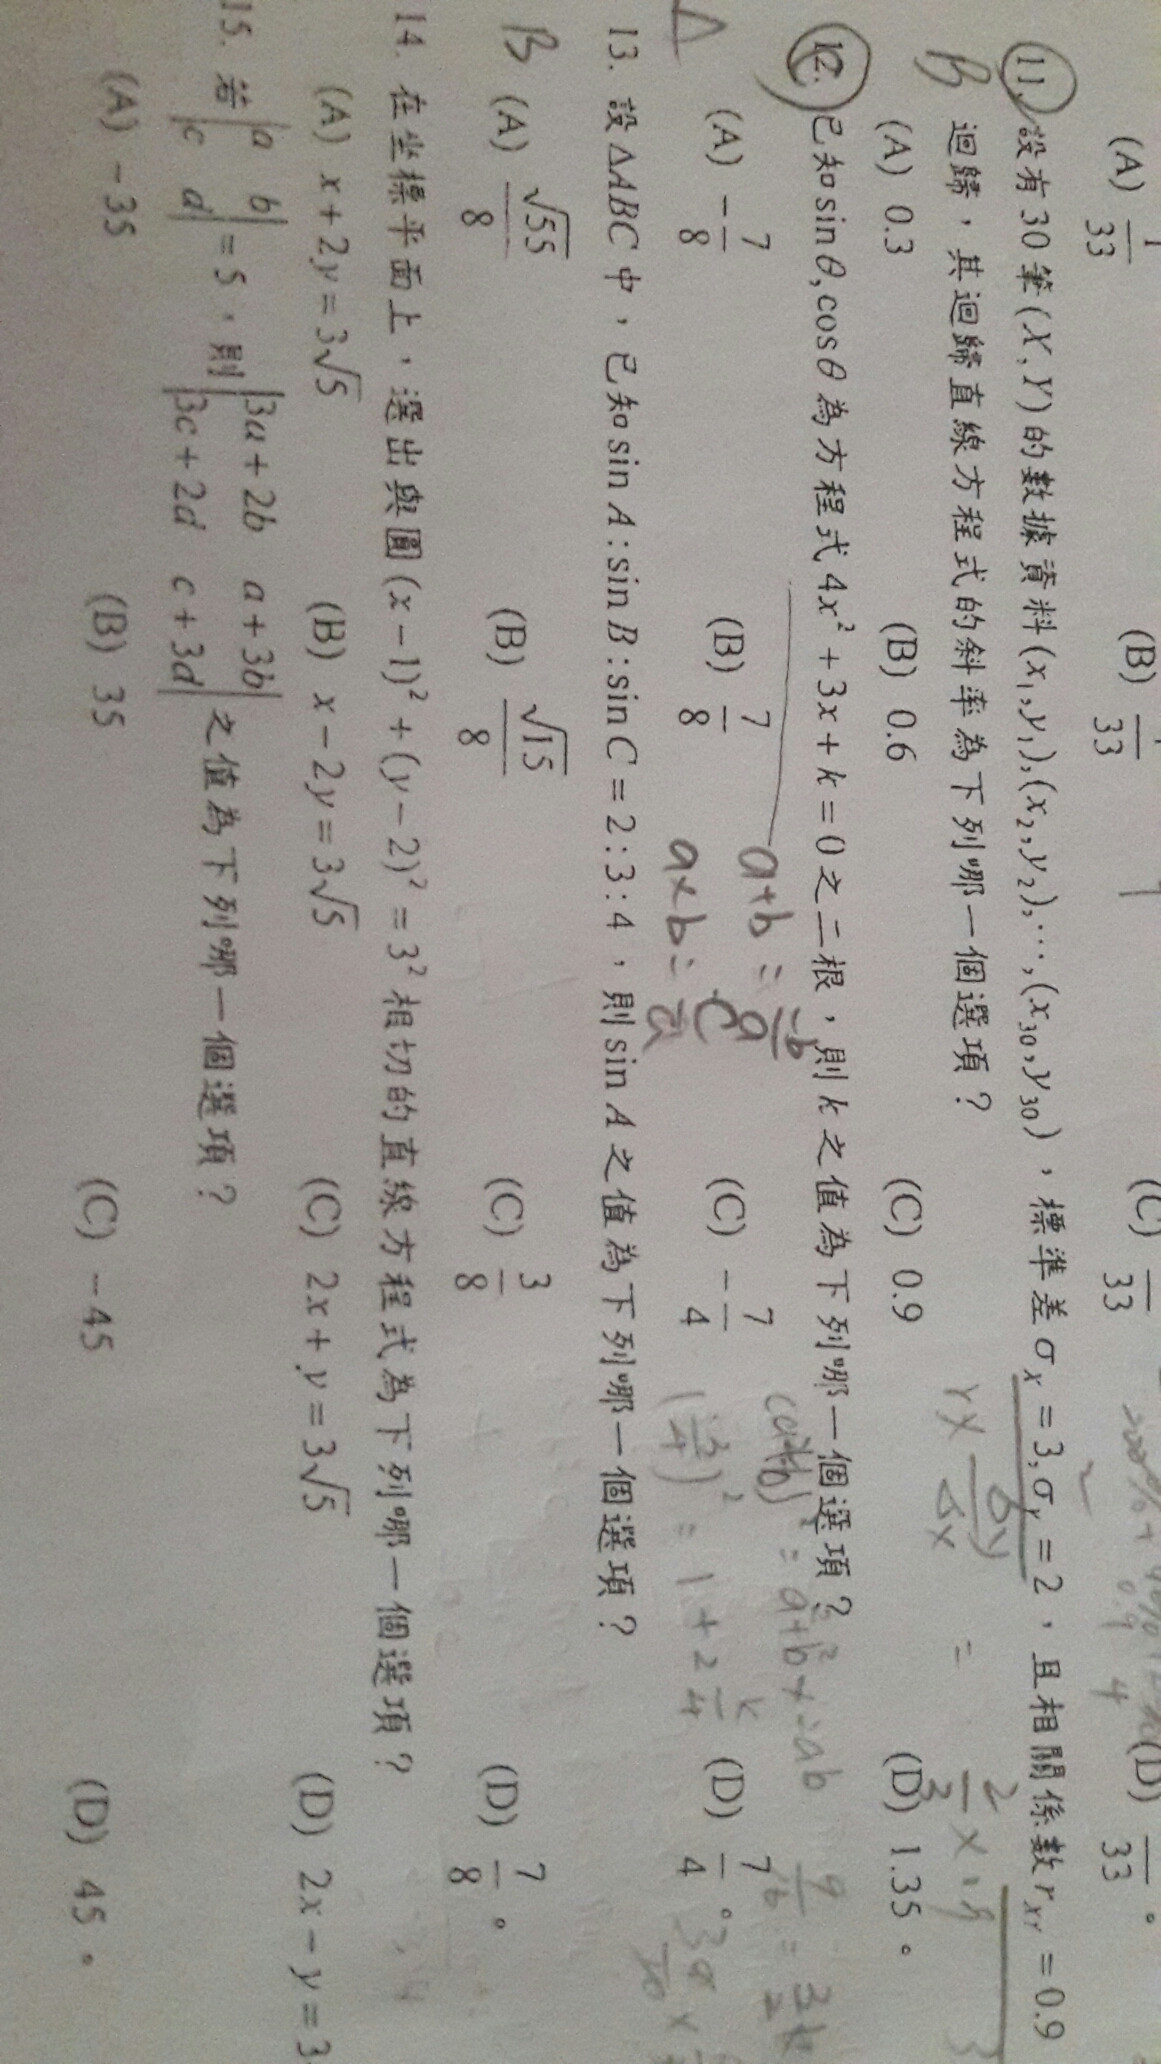 (A) 1/33 (B) /33 (C) /33 (D) /33 。
11. 設有30筆(X,Y)的數據資料(x₁,y₁),(x₂,y₂),…,(x₃₀,y₃₀),標準差σₓ=3,σᵧ=2,且相關係數r_XY=0.9
B 迴歸,其迴歸直線方程式的斜率為下列哪一個選項?
rx σy/σx = 2/3 x .9
(A) 0.3 (B) 0.6 (C) 0.9 (D) 1.35。
12. 已知sinθ,cosθ為方程式4x²+3x+k=0之二根,則k之值為下列哪一個選項?
A (A) -7/8 (B) 7/8 (C) -7/4 (D) 7/4。
a+b = -b/a
a×b = c/a
13. 設△ABC中,已知sin A:sin B:sin C=2:3:4,則sin A之值為下列哪一個選項?
B (A) √55/8 (B) √15/8 (C) 3/8 (D) 7/8。
14. 在坐標平面上,選出與圓(x-1)²+(y-2)²=3²相切的直線方程式為下列哪一個選項?
(A) x+2y=3√5 (B) x-2y=3√5 (C) 2x+y=3√5 (D) 2x-y=3
15. 若|a b; c d|=5,則|3a+2b a+3b; 3c+2d c+3d|之值為下列哪一個選項?
(A) -35 (B) 35 (C) -45 (D) 45。